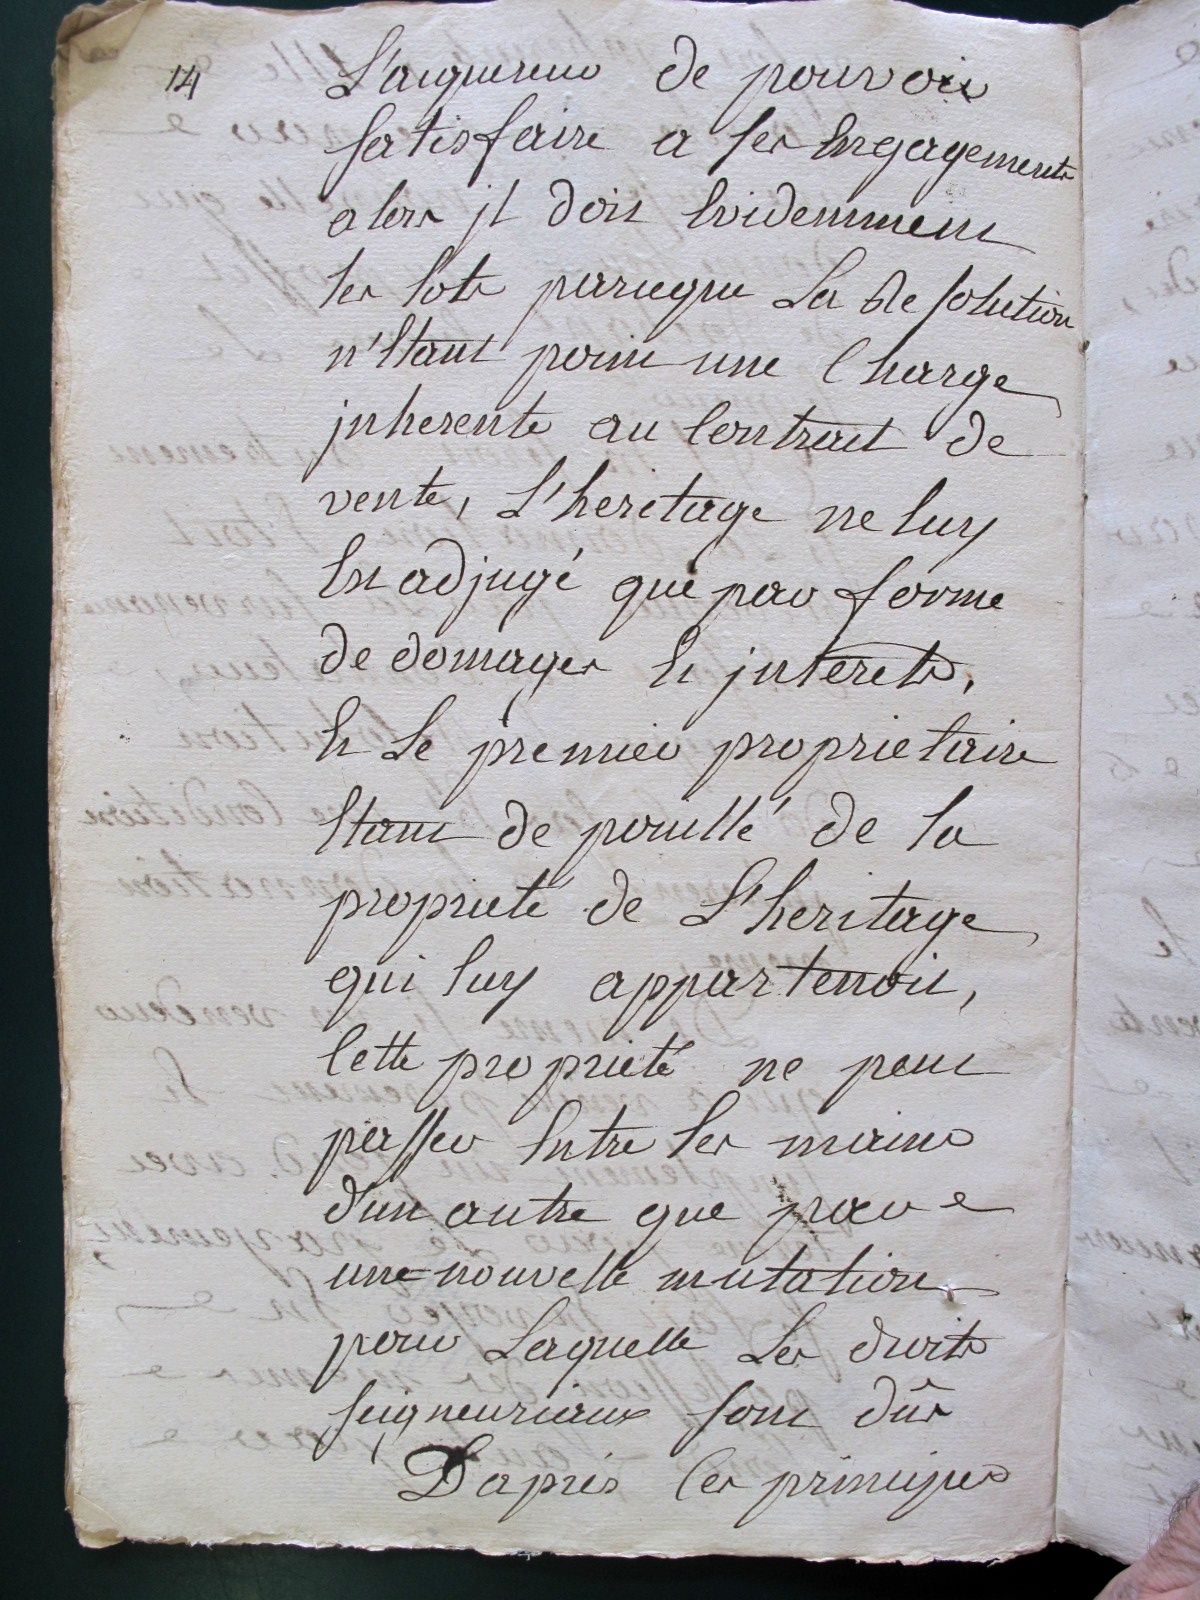 14
L'acquereur de pouvoir
satisfaire a ses Engagements
alors jl doit Evidemment
les lots parceque La Resolution
n'Etant point une Charge
jnherente au Contract de
vente, L'heritage ne luy
Est adjugé que par forme
de domages Et jnterets,
Et Le premier proprietaire
Etant depouillé de la
proprieté de L'heritage
qui luy appartenoit,
Cette proprieté ne peut
passer Entre les mains
d'un autre que par
une nouvelle mutation
pour Laquelle Les droits
seigneuriaux sont dûs
D'apres Ces principes